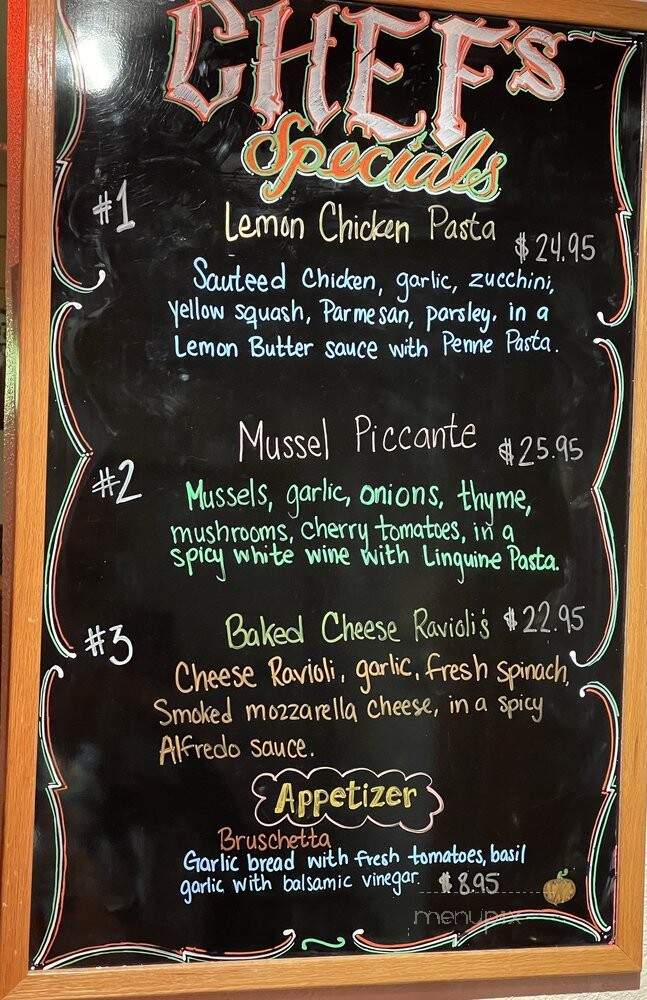 CHEF'S
Specials
#1
Lemon Chicken Pasta $24.95
Sauteed Chicken, garlic, zucchini,
yellow squash, Parmesan, parsley. in a
Lemon Butter sauce with Penne Pasta.
Mussel Piccante $25.95
#2
Mussels, garlic, onions, thyme,
mushrooms, cherry tomatoes, in a
spicy white wine with Linguine Pasta.
#3
Baked Cheese Ravioli's $22.95
Cheese Ravioli, garlic, fresh spinach,
Smoked mozzarella cheese, in a spicy
Alfredo sauce.
Appetizer
Bruschetta
Garlic bread with fresh tomatoes, basil
garlic with balsamic vinegar. $8.95
menupix